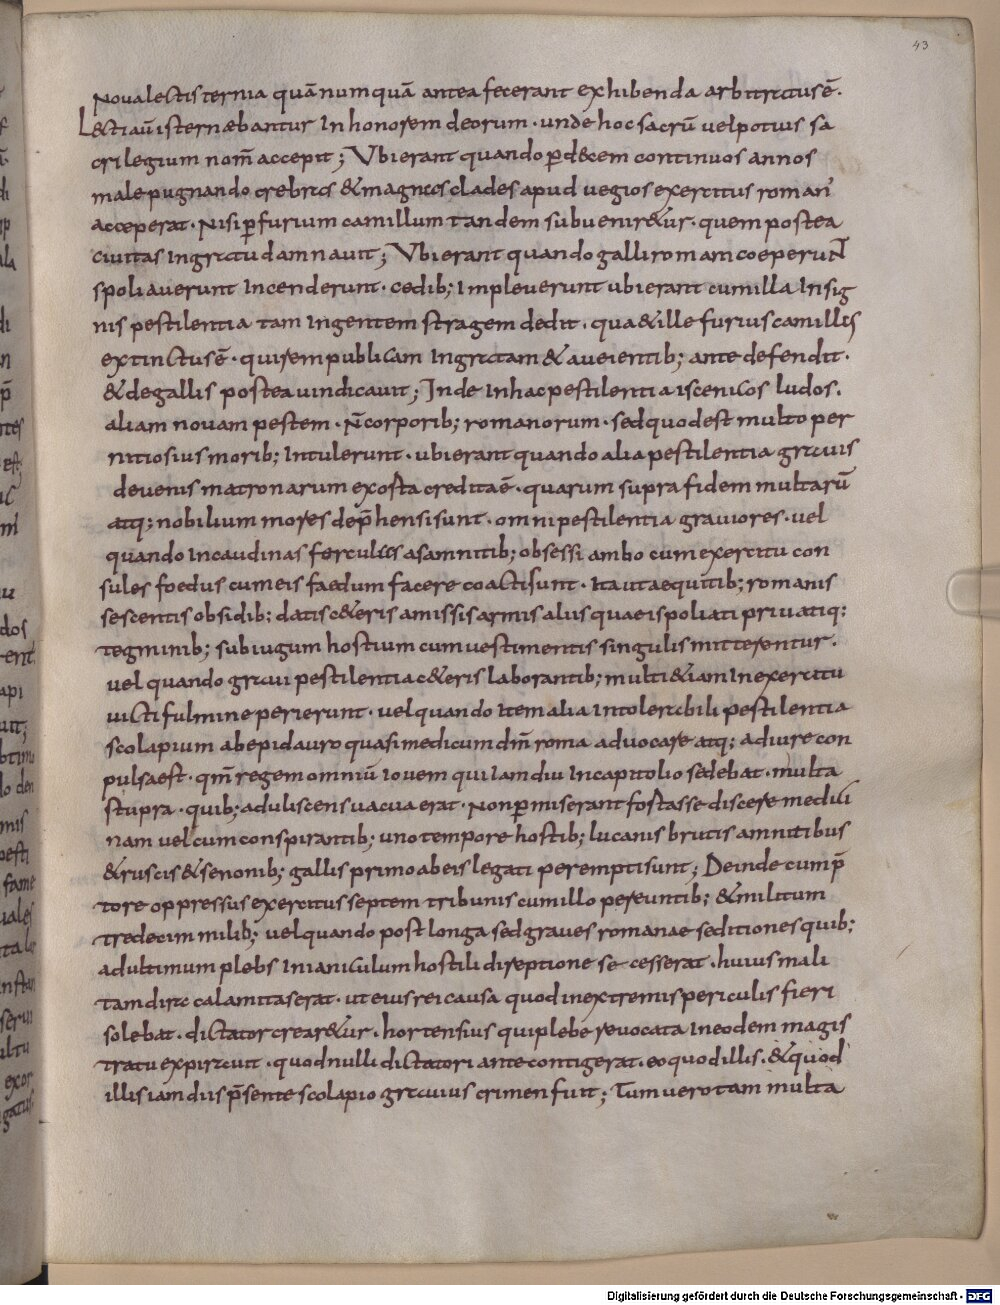 43
Noua lectisternia quā numquā antea fecerant exhibenda arbitratus ē.
Lecti aū isternæbantur In honorem deorum · unde hoc sacrū uel potius sa
crilegium nom̄ accepit; Vbi erant quando p̱ decem continuos annos
male pugnando crebras & magnas clades apud uegios exercitus roman̄
acceperat · Nisi p̱ furium camillum tandem subueniretur · quem postea
ciuitas Ingrata damnauit; Vbi erant quando galli romam coeperuNT
spoliauerunt Incenderunt · cedib; Impleuerunt ubi erant cum illa Insig
nis pestilentia tam Ingentem stragem dedit · qua & ille furius camillus
extinctus ē · qui rem publicam Ingratam & a ueientib; ante defendit ·
& de gallis postea uindicauit; Inde In hac pestilentia iscenicos ludos ·
aliam nouam pestem · N̄ corporib; romanorum · sed quod est multo per
nitiosius morib; Intulerunt · ubi erant quando alia pestilentia grauis
deuenis matronarum exosta credita ē · quarum supra fidem multarū
atq; nobilium mores dep̄hensi sunt · omni pestilentia grauiores · uel
quando Incaudinas ferculas asamnitib; obsessi ambo cum exercitu con
sules foedus cum eis faedum facere coacti sunt · Ita ut aequitib; romanis
sescentis obsidib; datis c&eris amissis armis aliis quae ispoliati priuatiq;
tegminib; sub iugum hostium cum uestimentis singulis mitterentur ·
uel quando graui pestilentia c&eris laborantib; multi &iam In exercitu
uicti fulmine perierunt · uel quando Item alia Intolerabili pestilentia
scolapium ab epidauro quasi medicum dm̄ roma aduocare atq; adiure con
pulsa est · qm̄ regem omniū iouem qui Iam diu Incapitolio sedebat · multa
stupra · quib; aduliscens uacua erat · Non p̱miserant fostasse discere medici
nam uel cum conspirantib; uno tempore hostib; lucanis brutis amnitibus
& ruscis & senonib; gallis primo ab eis legati perempti sunt; Deinde cum p̄
tore oppressus exercitus septem tribunis cum illo pereuntib; & militum
tredecim milib; uel quando post longa sed graues romanae seditiones quib;
ad ultimum plebs In ianiculum hostili direptione se cesserat · huius mali
tam dira calamitas erat · ut eius rei causa quod in extremis periculis fieri
solebat · dictator crear&ur · hortensius qui plebe reuocata In eodem magis
tratu expirauit · quod nulli dictatori ante contigerat · eo quod illis · & quod
illis iam diis p̄sente scolapio grauius crimen fuit; Tum uero tam multa
Digitalisierung gefördert durch die Deutsche Forschungsgemeinschaft - DFG